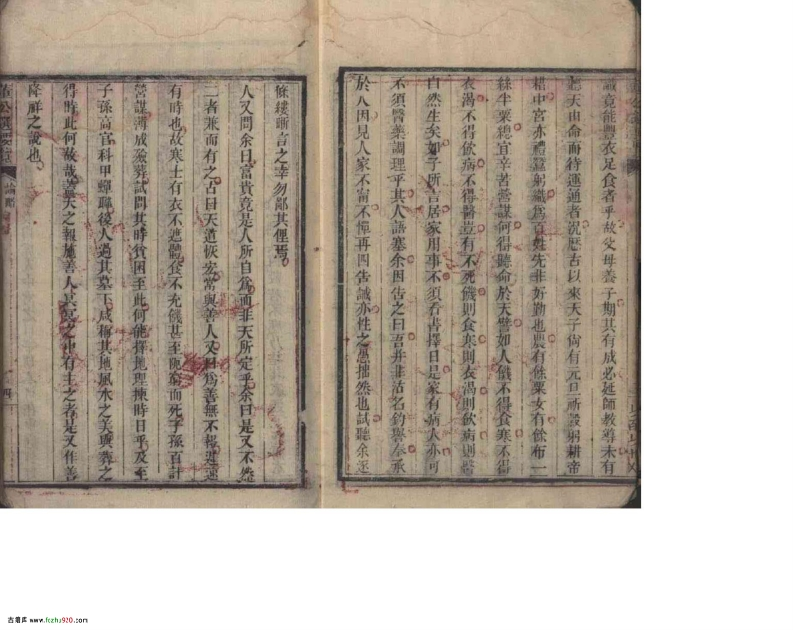 識竟能豐衣足食者乎故父母養子期其有成必延師教導未有
天由命而待運通者況歷古以來天子尚有元旦祈穀躬耕帝
耤中宮亦禮蠶躬織爲百姓先非好勤也男有餘粟女有餘布一
絲半粟總宜辛苦營謀何得聽命於天譬如人饑不得食寒不得
衣渴不得飲病不得醫豈有不死饑則食寒則衣渴則飲病則醫
自然生矣如子所言居家用事不須看書擇日是家有病人亦可
不須醫藥調理乎其人語塞余因告之曰吾并非沽名釣譽奉承
於人因見人家不甯不憚再四告誡亦性之愚拙然也試聽余逐
條縷晰言之幸勿鄙其俚焉
人又問余曰富貴竟是人所自爲而非天所定乎余曰是又不然
二者兼而有之古曰天道恢宏常與善人又曰爲善無不報遲速
有時也故寒士有衣不遮體食不充饑甚至阨窮而死子孫百計
營謀薄成殮葬試問其時貧困至此何能擇地理揀時日乎及至
子孫高官科甲蟬聯後人過其墓下咸稱其地風水之美與葬之
得時此何故哉蓋天之報施善人冥冥之中有主之者是又作善
降祥之說也
論
四
古籍库 www.fozhu920.com